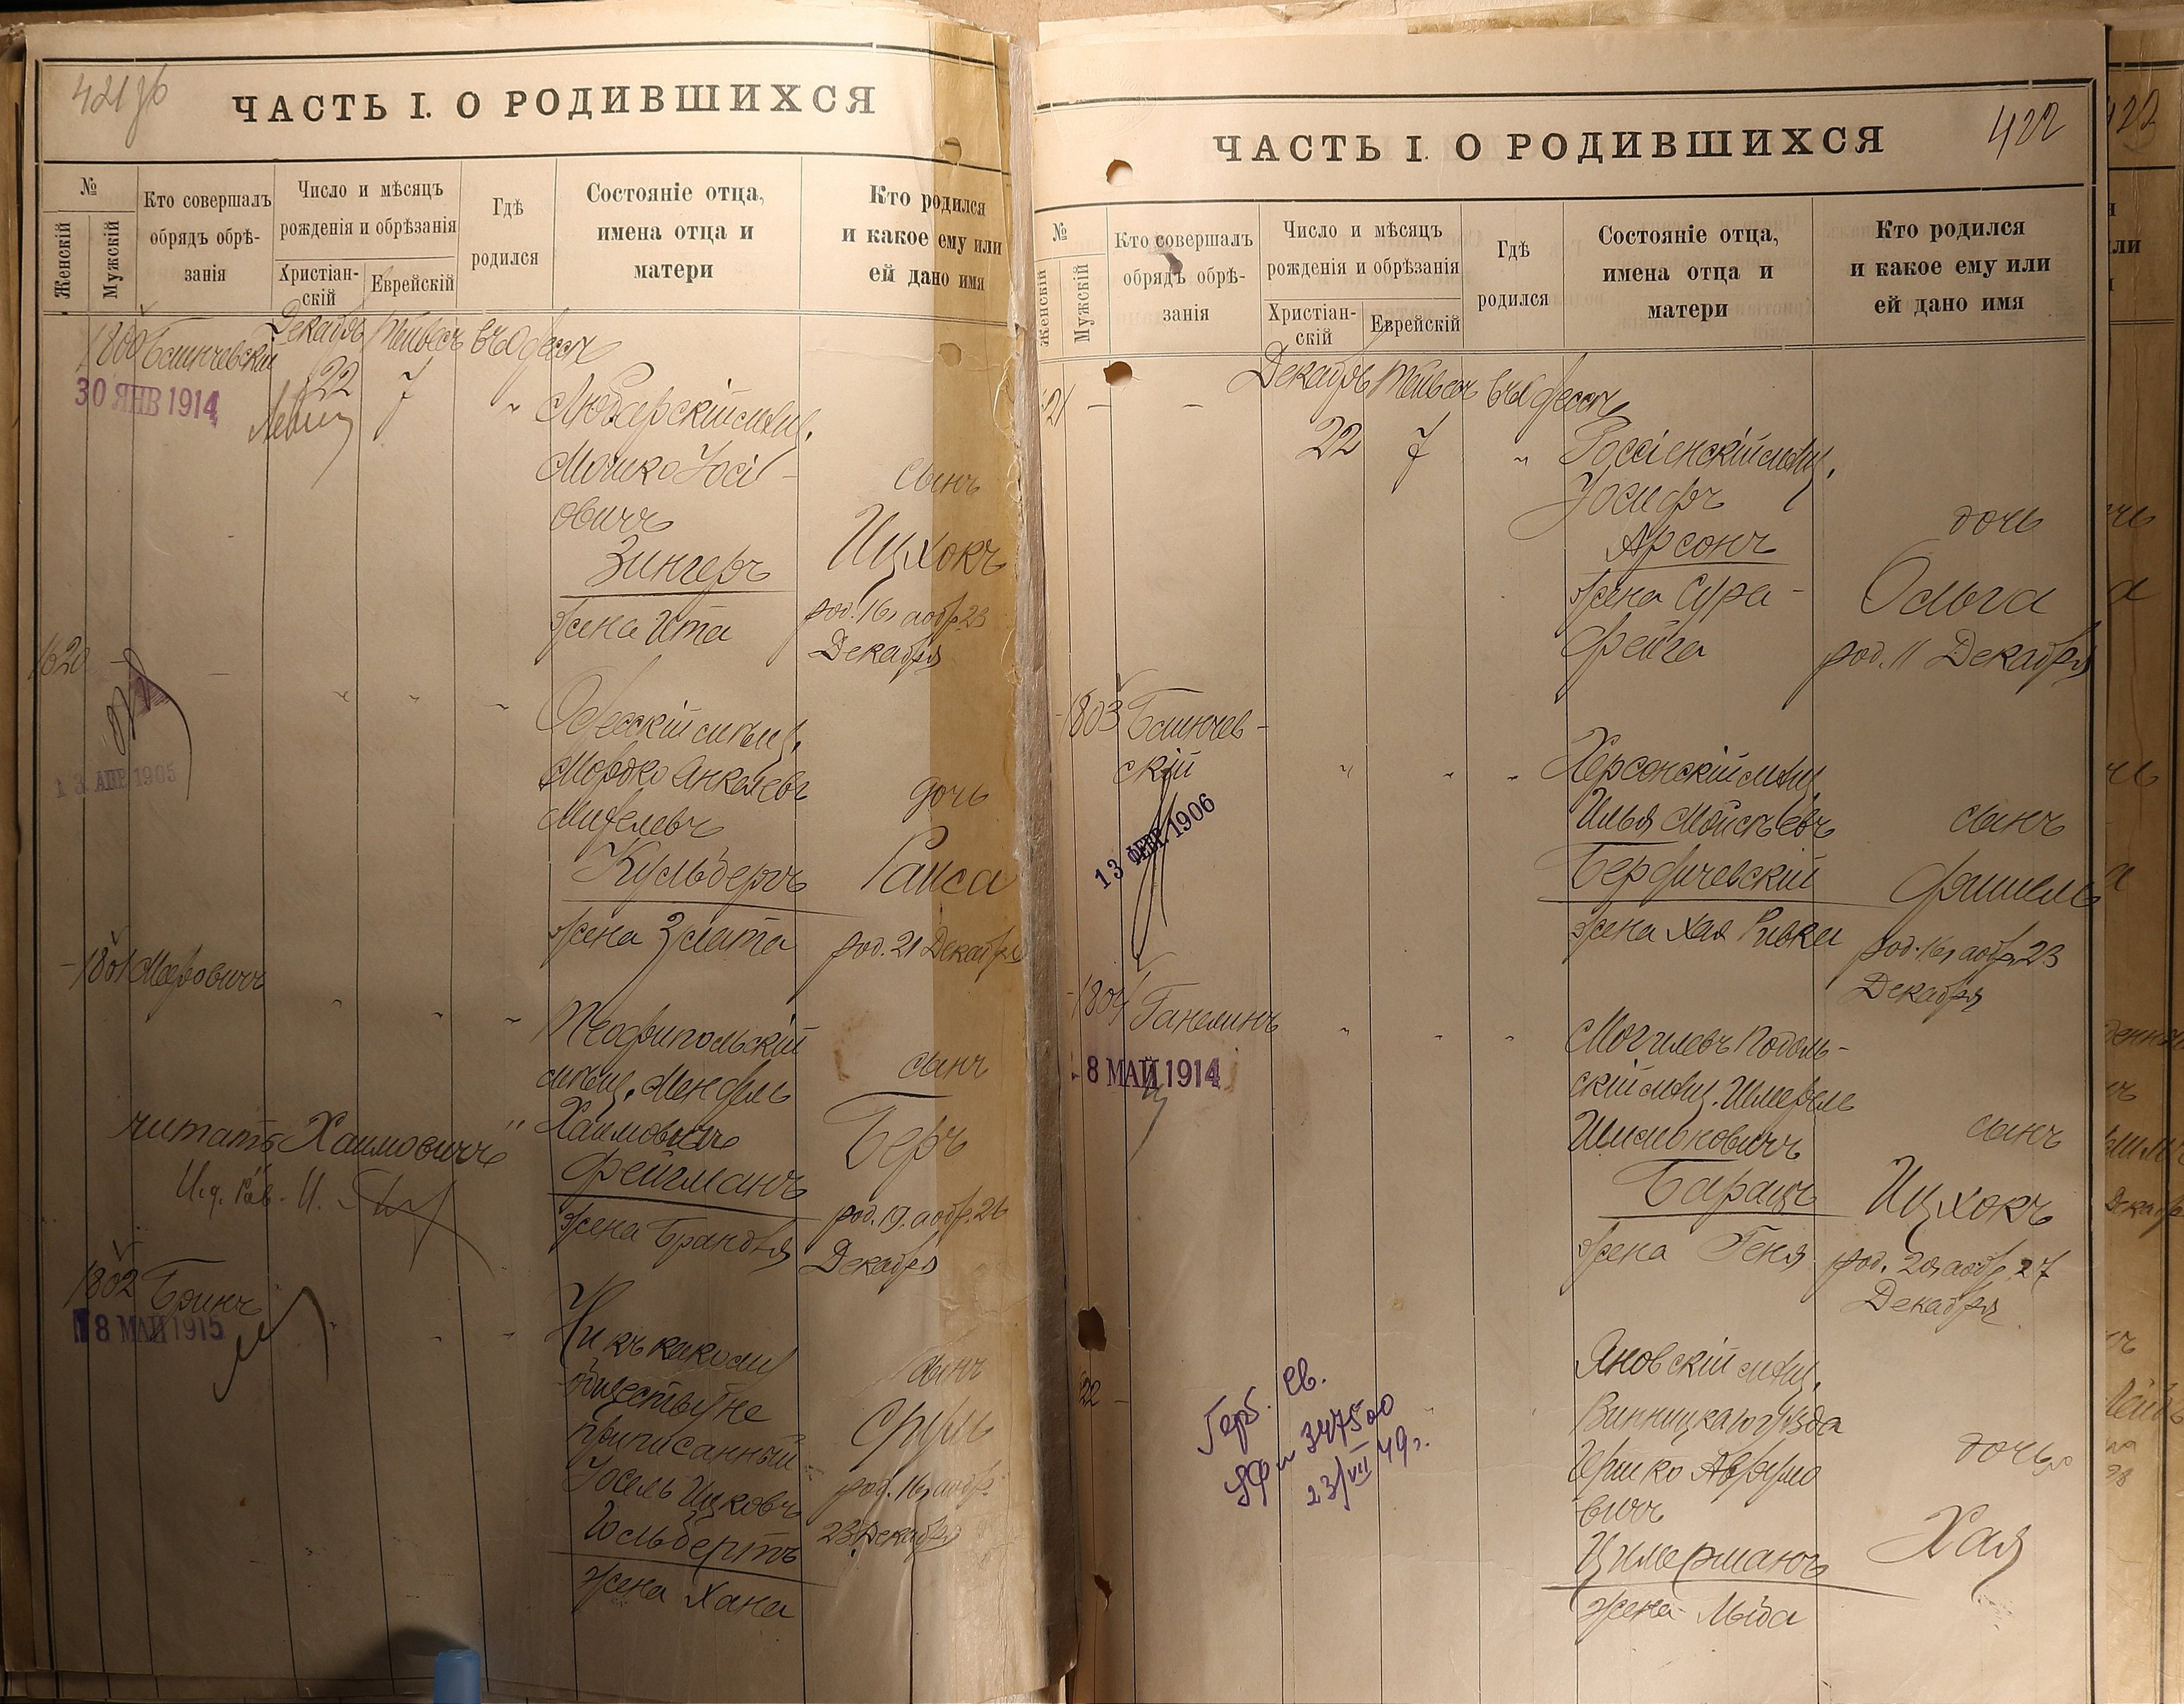 421 зб
ЧАСТЬ I. О РОДИВШИХСЯ
№
Женскій
Мужскій
Кто совершалъ
обрядъ обрѣ-
занія
Число и мѣсяцъ
рожденія и обрѣзанія
Христіан-
скій
Еврейскій
Гдѣ
родился
Состояніе отца,
имена отца и
матери
Кто родился
и какое ему или
ей дано имя
1800
Декабрь Тейвесъ въ Одессѣ
22 7 "
30 ЯНВ 1914
Любарскій мѣщ.
Мошко Іосі-
овичъ
Зингеръ
жена Ита
сынъ
Ицхокъ
род. 16, а обр. 23
Декабря
1620
13 АПР 1905
Одесскій мѣщ.
Мордко Янкелевъ
Кульбергъ
жена Злата
дочь
Раиса
род. 21 Декабря
1801 Меровичъ
Теофипольскій
мѣщ. Мендель
Хаимовичъ
Фейгманъ
жена Брандля
сынъ
Беръ
род. 19, а обр. 26
Декабря
читать Хаимовичъ"
И.д. Рав. И.
1802 Бринъ
18 МАЙ 1915
Ни къ какому
обществу не
приписанный
Іосель Ицковъ
Гольбертъ
жена Хана
сынъ
Сруль
род. 16, а обр.
23 Декабря
422
ЧАСТЬ I. О РОДИВШИХСЯ
№
Женскій
Мужскій
Кто совершалъ
обрядъ обрѣ-
занія
Число и мѣсяцъ
рожденія и обрѣзанія
Христіан-
скій
Еврейскій
Гдѣ
родился
Состояніе отца,
имена отца и
матери
Кто родился
и какое ему или
ей дано имя
21 - -
Декабрь Тейвесъ въ Одессѣ
22 7 "
Россіенскій мѣщ.
Іосифъ
Арсонъ
жена Сура-
Фейга
дочь
Ольга
род. 11 Декабря
1803 Блинчев-
скій
13 ФЕВ. 1906
Херсонскій мѣщ.
Илья Мойсѣевъ
Бердичевскій
жена Хая Ривка
сынъ
Фишель
род. 16, а обр. 23
Декабря
1804 Ганелинъ
8 МАЙ 1914
Могилевъ Подоль-
скій мѣщ. Шмерель
Шимоновичъ
Барацъ
жена Геня
сынъ
Ицхокъ
род. 20, а обр. 27
Декабря
22 -
Герб. св.
347500
23/VII 49 г.
Яновскій мѣщ.
Винницкаго уѣзда
Гершко Аврумо
вичъ
Цимерманъ
жена
дочь
Хая